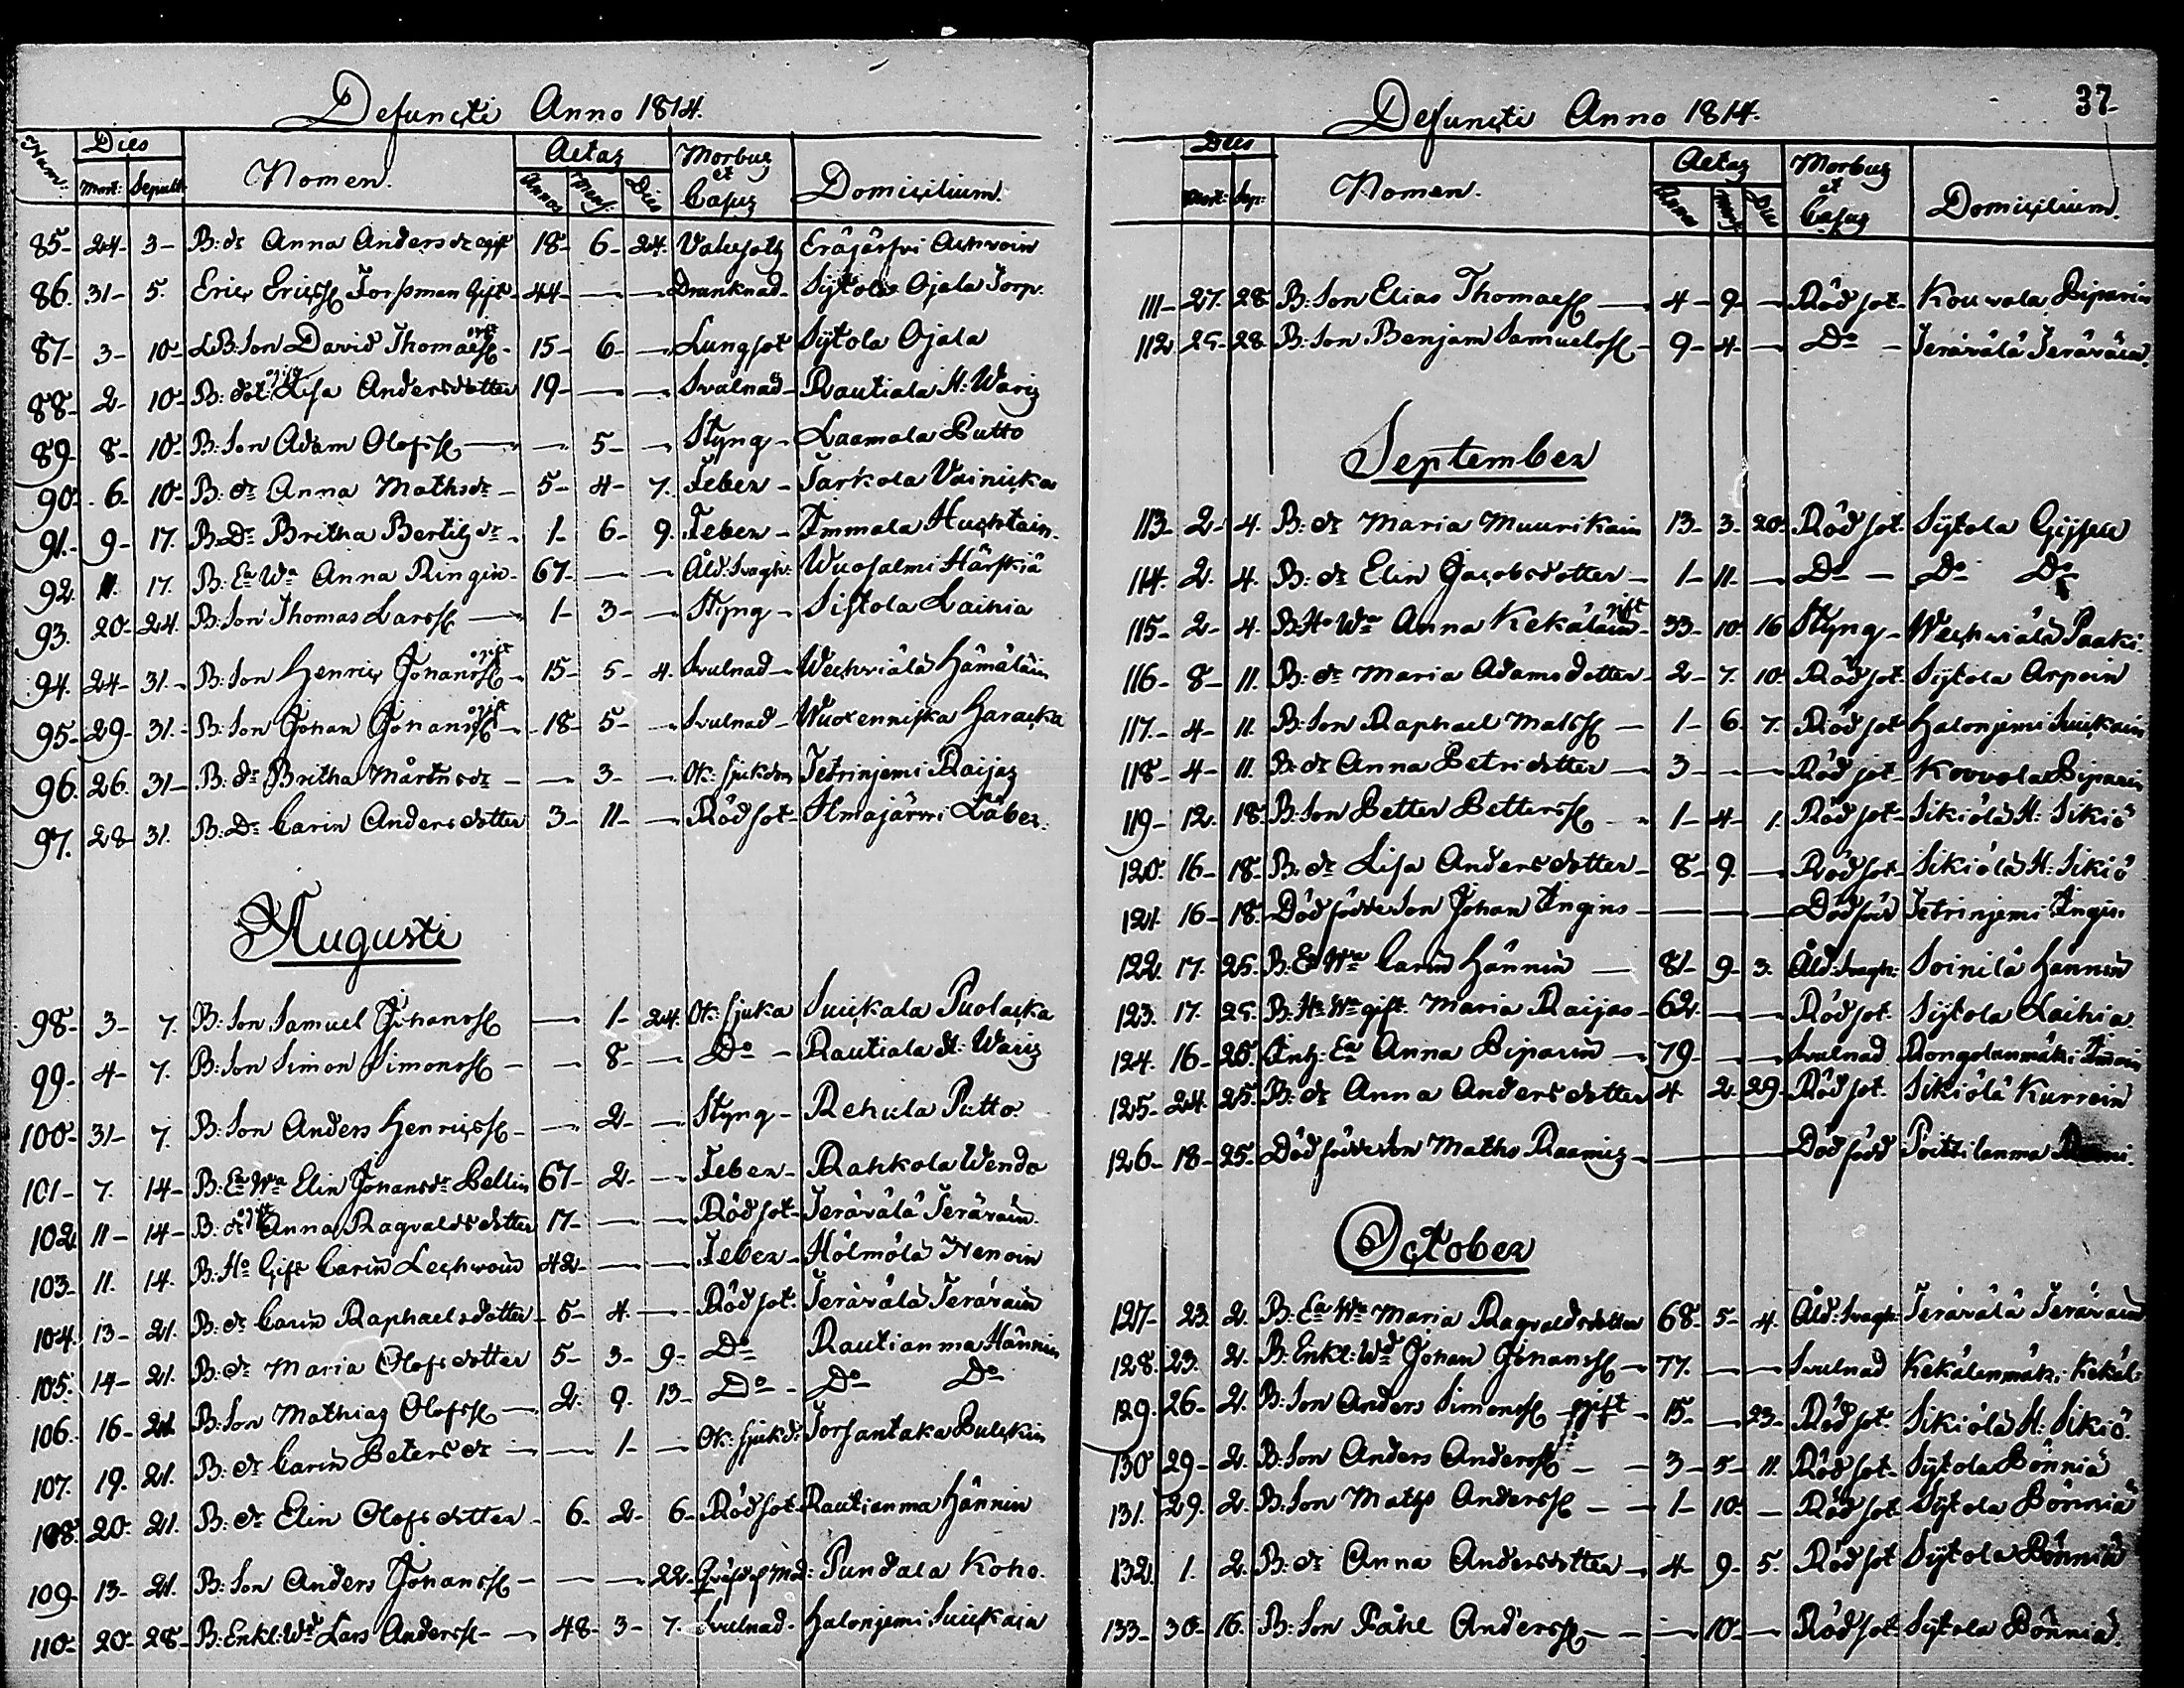 Defuncti Anno 1814.
Num: Dies Mort: Sepult: Nomen. Aetas Annos Mens: Dies Morbus et Casus Domicilium.
85- 24- 3- B: dr Anna Anders dr ogift 18- 6- 24. Eräjärfvi
86. 31- 5. Eric Ericss Torpman Gift 44- — — Dranknad- Sijtola Ojala Torp.
87- 3- 10- LB: Son David Thomaess ogift 15- 6- — Lungsot Sijtola Ojala
88- 2- 10- B: dot: ogift Lisa Andersdotter 19- — — Svulnad- Rautiala H: Waris
89- 8- 10- B: Son Adam Olofss — — 5- — Styng- Laamala Putto
90- 6- 10- B: dr Anna Mathsdr- 5- 4- 7. Feber- Tarkola Vainicka
91.- 9- 17. B: Dr Britha Bertils dr- 1- 6- 9. Feber- Immala Huchtain.
92. 11. 17. B: Ea Wa Anna Ringin- 67- — — Åld: Svagh: Wuosalmi Härskiä
93. 20- 24. B: Son Thomas Larss — 1- 3- — Styng- Sijtola Laihia
94. 24- 31.- B: Son Henric Johanss ogift 15- 5- 4. Svulnad- Wechviälä Hämäläin
95- 29- 31.- B: Son Johan Johanss ogift 18- 5- — Svulnad- Wuoxenniska Haracka
96. 26. 31- B: dr Britha Mårtns dr- — 3- — Ok: sjukdom Jetrinjemi Raijas
97. 28- 31. B: Dr Carin Anders dotter 3- 11- — Rödsot- Ilmajärwi Läber.
Augusti
98- 3- 7. B: Son Samuel Johanss — 1- 24. Ok: sjuka Suickala Puolacka
99- 4- 7. B: Son Simon Simonss- — 8- — Do- Rautiala H: Waris
100- 31- 7. B: Son Anders Henricss- — 2- — Styng- Rehula Putto
101- 7. 14- B: Ea Wa Elin Johansdr Bellin 67- 2- — Feber- Rahkola Wenda
102. 11- 14- B: dr ogift Anna Ragvalds dotter 17- — — Rödsot- Terävälä Teräväin.
103- 11. 14. B: Ho Gift Carin Lechvoin 42- — — Feber- Hölmölä Nenoin
104. 13- 21. B: dr Carin Raphaels dotter- 5- 4- — Rödsot. Terävälä Teräväin
105. 14- 21. B: dr Maria Olofs dotter 5- 3- 9- Do Rautianma Hännin
106. 16- 21. B: Son Mathias Olofss — 2. 9. 13- Do- Do Do
107. 19. 21. B: dr Carin Peters dr — — 1- — Ok: sjukd: Torsantaka Pulckin
108. 20- 21. B: dr Elin Olofs dotter- 6- 2- 6- Rödsot- Rautianma Hännin
109- 13- 21. B: Son Anders Johanss- — — 22- Pundala Koho.
110- 20- 28- B: Enkl: Wd Lars Anderss- 48- 3- 7. Svulnad. Halonjemi Suickain
Defuncti Anno 1814. 37
Dies Mort: Sep: Nomen. Aetas Annos Mens Dies Morbus et Casus Domicilium.
111- 27. 28 B: Son Elias Thomaess — 4- 9- — Rödsot- Kouvola Biparin
112. 25- 28. B: Son Benjam Samuelss- 9- 4- — Do- Terävälä Teräväin.
September
113- 2- 4. B: dr Maria Muurikain 13- 3- 20- Rödsot- Sijtola
114- 2. 4. B: dr Elin Jacobsdotter- 1- 11- — Do- Do Do
115- 2- 4. B: Ho Wa Anna Kekäläin gift 33- 10- 16 Styng- Wechviälä Paaki.
116- 8- 11. B: dr Maria Adams dotter- 2- 7. 10- Rödsot- Sijtola Arpoin
117.- 4- 11. B: Son Raphael Matss- 1- 6- 7. Rödsot Halonjemi Suickain
118- 4- 11. B: dr Anna Petri dotter- 3- — — Rödsot- Kouvola Biparin
119- 12. 18. B: Son Petter Petterss- 1- 4- 1. Rödsot- Sikiölä H: Sikiö
120. 16- 18- B: dr Lisa Anders dotter- 8- 9 — Rödsot- Sikiölä H: Sikiö
121. 16- 18. Dödfödde Son Johan Ingins- — — — Dödföd Jetrinjemi Ingin.
122. 17. 25. B: Ea Wa Carin Hännin — 81- 9- 3. Åld: Svagh: Soinilä Hännin
123. 17. 25. B: Ha Wa gift. Maria Raijas- 62. — — Rödsot. Sijtola Laihia
124. 16- 25. Inh: Ea Anna Biparin — 79- — — Svulnad.
125- 24. 25. B: dr Anna Anders dotter 4 2- 29- Rödsot. Sikiölä Kurroin
126- 18- 25- Dödfödde Son Maths Raamis — — — Dödföd Poittilanma
October
127- 23. 2. B: Ea Wa Maria Ragvalds dotter 68- 5- 4. Åld: Svagh: Terävälä Teräväin
128. 23. 2. B: Enkl: Wd Johan Johanss- 77. — — Svulnad Kekälenmäki Kekäl:
129. 26- 2. B: Son Anders Simonss ogift- 15- — 23- Rödsot. Sikiölä H: Sikiö.
130 29- 2. B: Son Anders Anderss- 3- 5- 11. Rödsot- Sijtola Pönniä
131. 29. 2. B: Son Maths Anderss- 1- 10- — Rödsot Sijtola Pönniä
132. 1. 2. B: dr Anna Andersdotter- 4- 9- 5. Rödsot Sijtola Pönniä
133- 30- 16. B: Son Påhl Anderss- — 10- — Rödsot- Sijtola Pönniä.